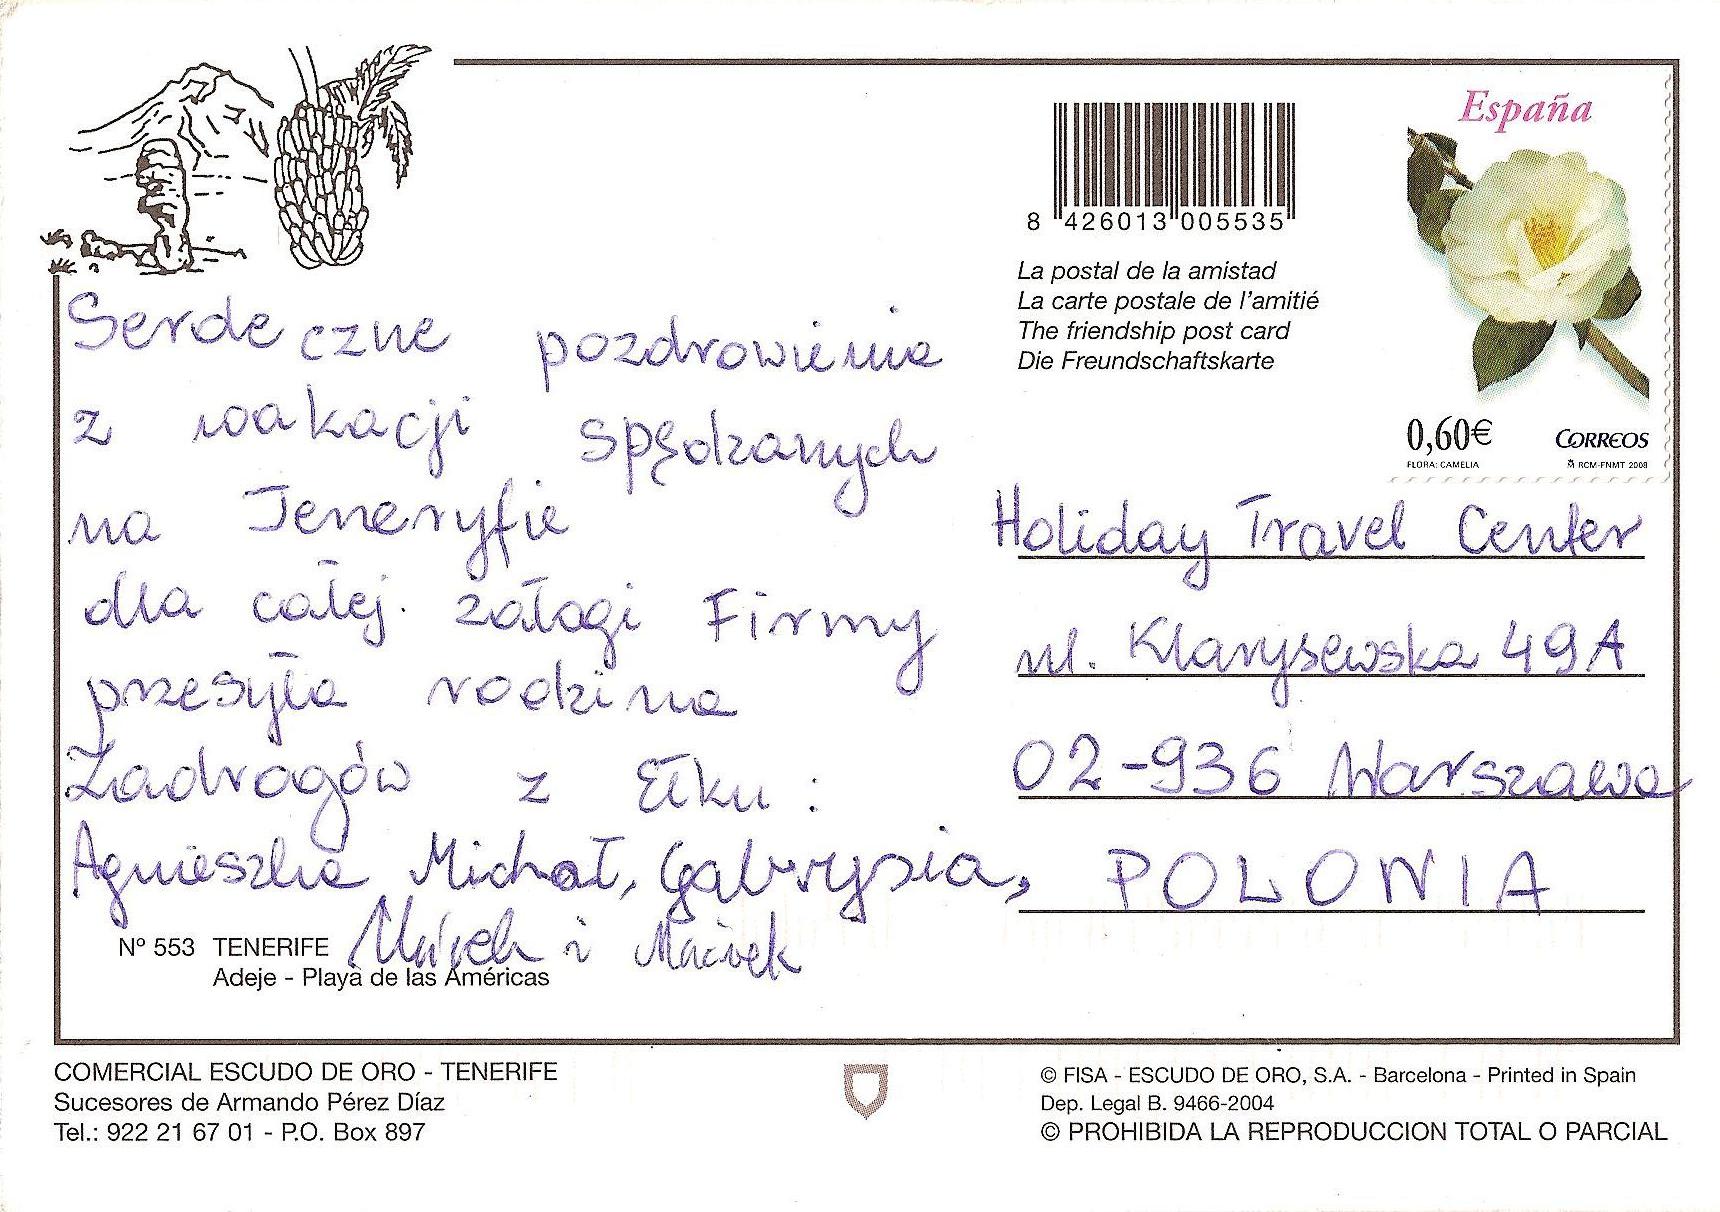 Serdeczne pozdrowienia
z wakacji spędzanych
na Teneryfie
dla całej załogi Firmy
przesyła rodzina
Zadrogów z Ełku:
Agnieszka Michał, Gabrysia,
i Maciek
Nº 553 TENERIFE
Adeje - Playa de las Américas
8 426013 005535
La postal de la amistad
La carte postale de l'amitié
The friendship post card
Die Freundschaftskarte
España
0,60€ CORREOS
FLORA: CAMELIA RCM-FNMT 2008
Holiday Travel Center
ul. Klarysewska 49A
02-936 Warszawa
POLONIA
COMERCIAL ESCUDO DE ORO - TENERIFE
Sucesores de Armando Pérez Díaz
Tel.: 922 21 67 01 - P.O. Box 897
© FISA - ESCUDO DE ORO, S.A. - Barcelona - Printed in Spain
Dep. Legal B. 9466-2004
© PROHIBIDA LA REPRODUCCION TOTAL O PARCIAL